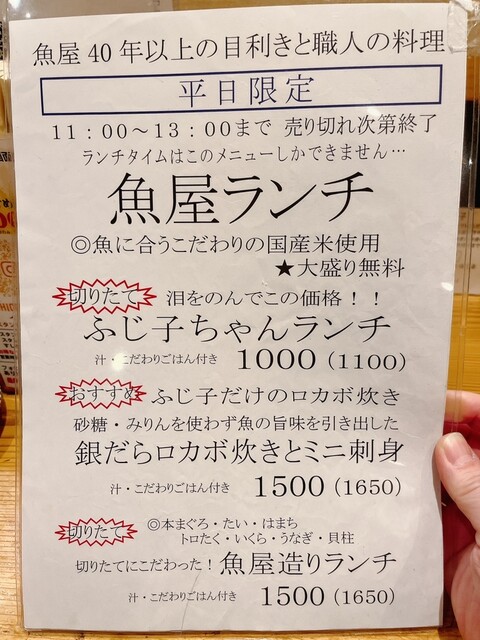 魚屋40年以上の目利きと職人の料理
平日限定
11：00～13：00まで 売り切れ次第終了
ランチタイムはこのメニューしかできません…
魚屋ランチ
◎魚に合うこだわりの国産米使用
★大盛り無料
切りたて 泪をのんでこの価格！！
ふじ子ちゃんランチ
汁・こだわりごはん付き 1000（1100）
おすすめ ふじ子だけのロカボ炊き
砂糖・みりんを使わず魚の旨味を引き出した
銀だらロカボ炊きとミニ刺身
汁・こだわりごはん付き 1500（1650）
切りたて ◎本まぐろ・たい・はまち
トロたく・いくら・うなぎ・貝柱
切りたてにこだわった！魚屋造りランチ
汁・こだわりごはん付き 1500（1650）